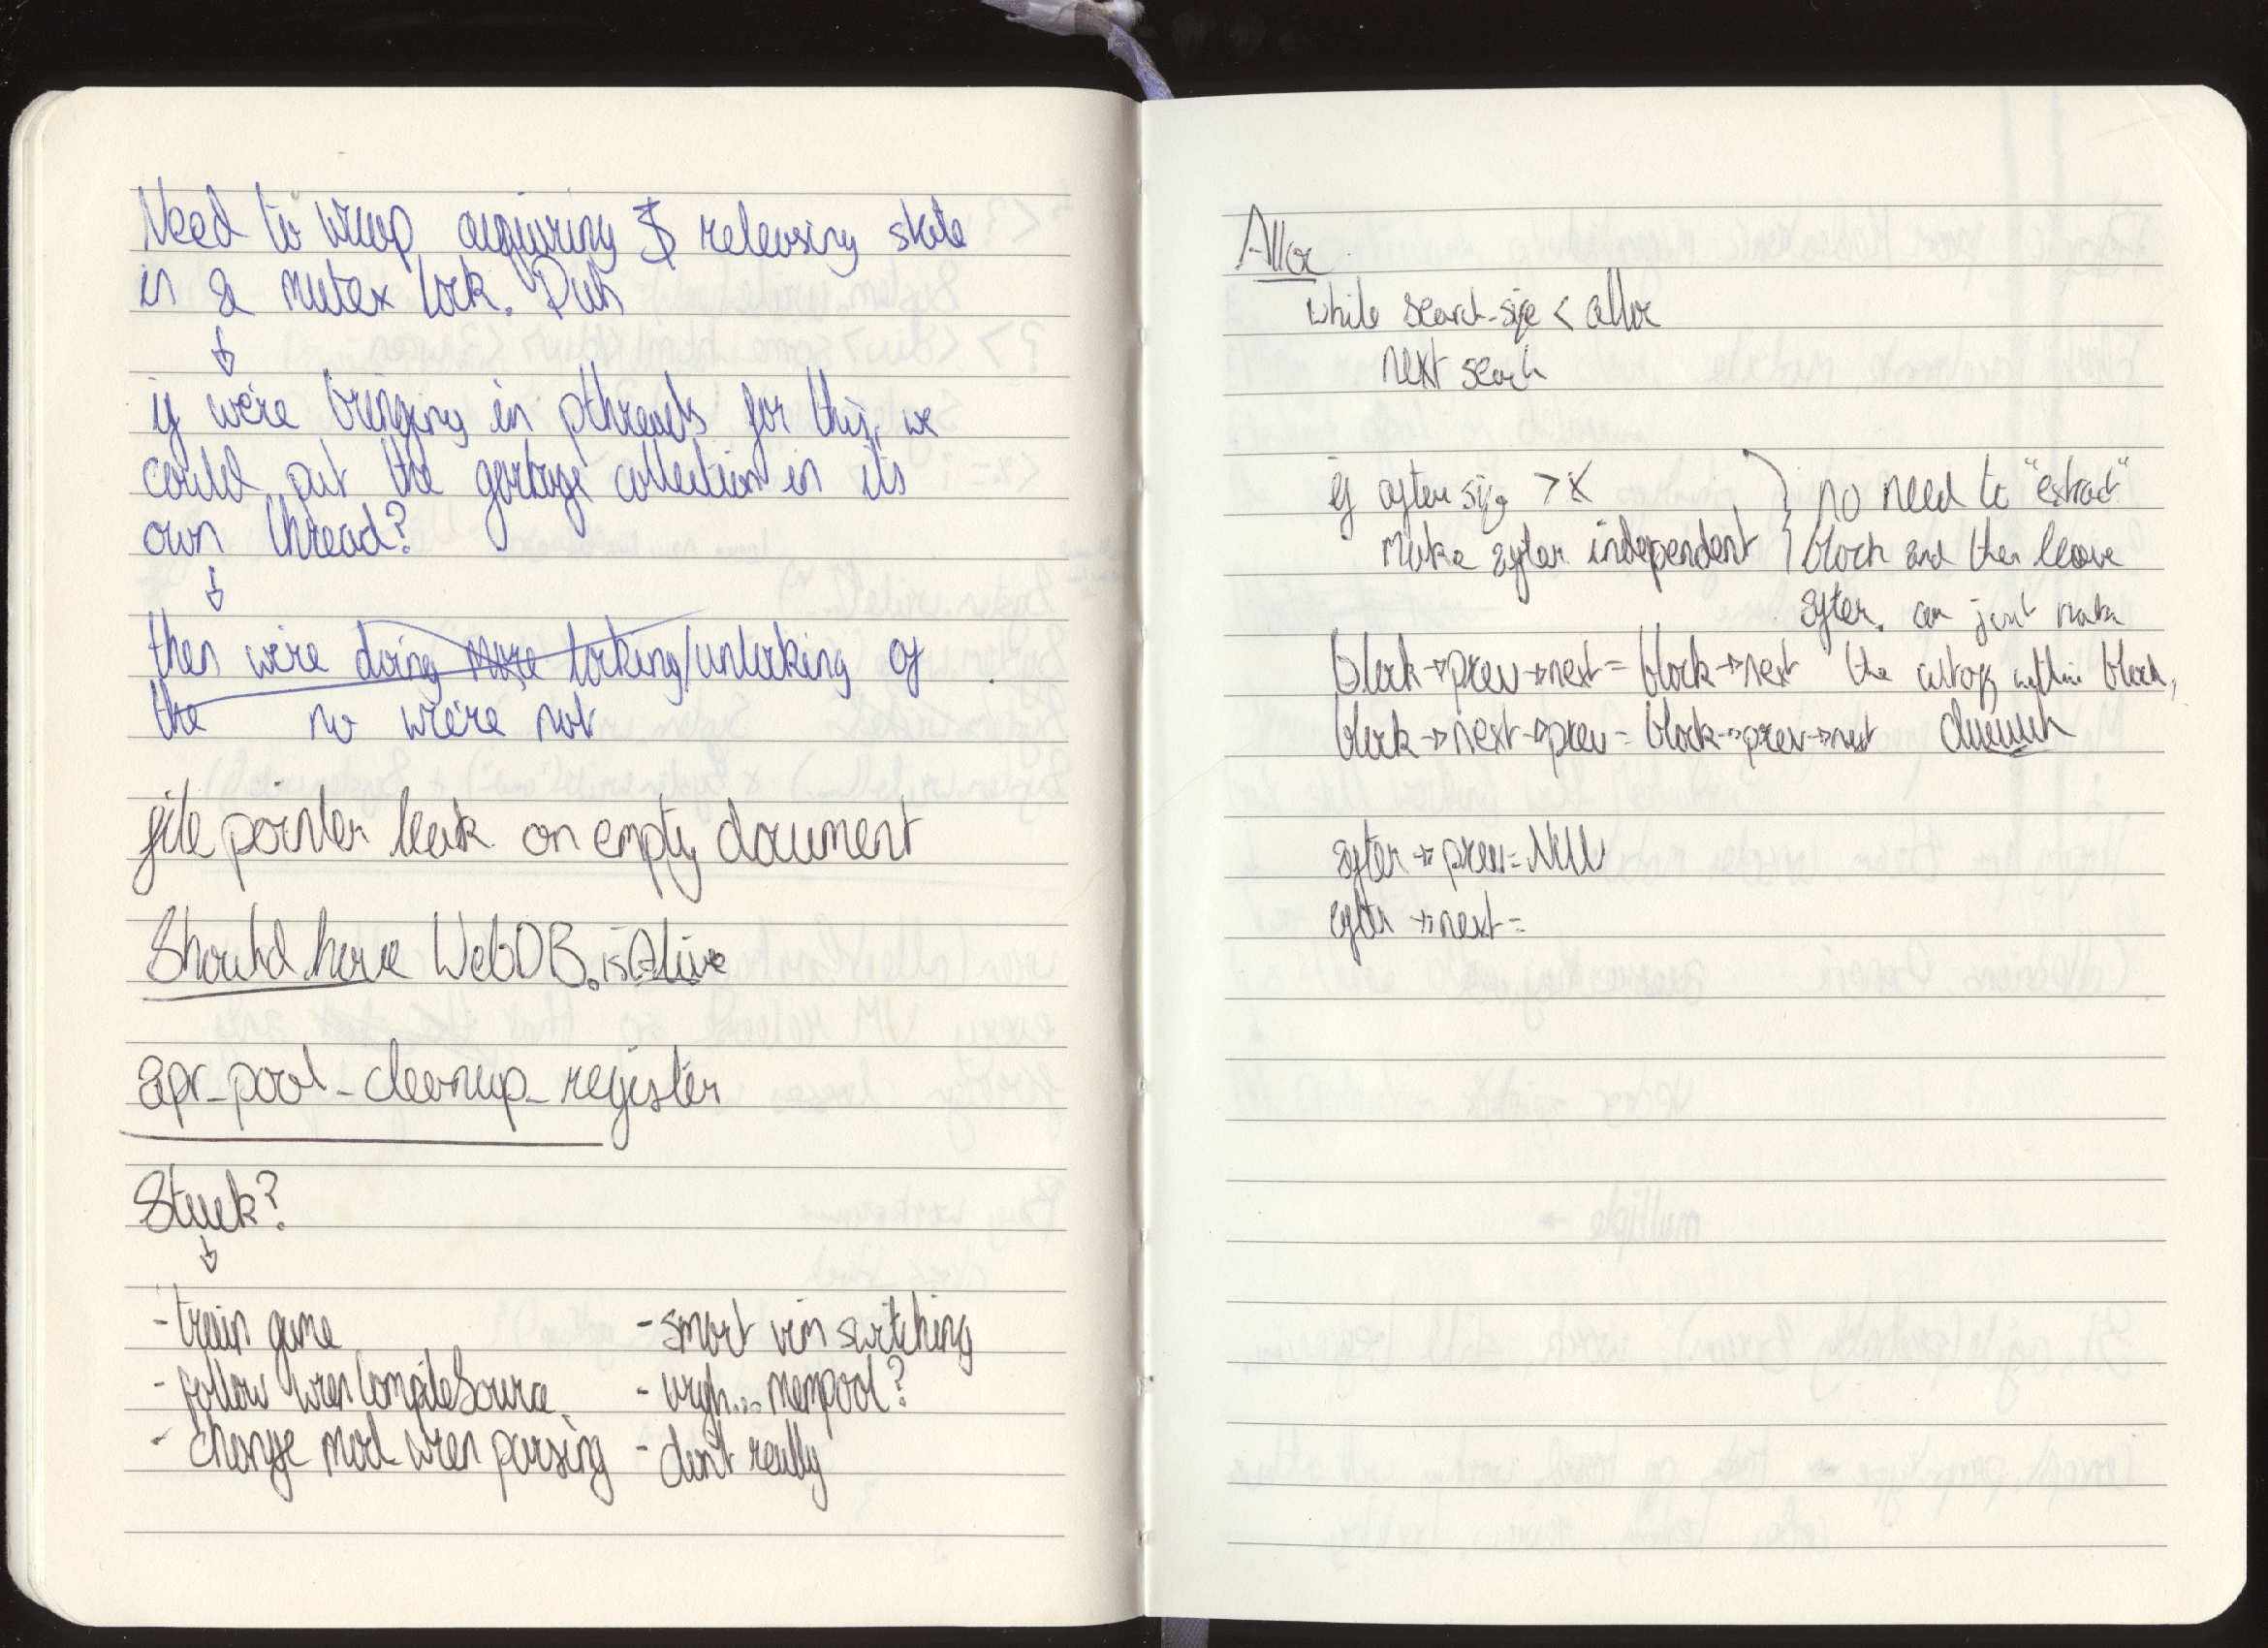 Need to wrap acquiring & releasing state
in a mutex lock. Duh
↓
if we're bringing in pthreads for this, we
could put the garbage collection in its
own thread?
↓
then we're doing more locking/unlocking of
the no we're not
file pointer leak on empty document
Should have WebDB.isAlive
apr_pool_cleanup_register
Stuck?
↓
- train game
- follow wrenCompileSource
- change mod_wren parsing
- smart vim switching
- urgh... mempool?
- don't really
Alloc
while search_size < alloc
next search
if after size > x
make after independent
} no need to "extract"
block and then leave
after. can just make
the cutoff within block,
block→prev→next = block→next
block→next→prev = block→prev→next
after→prev = NULL
after→next =